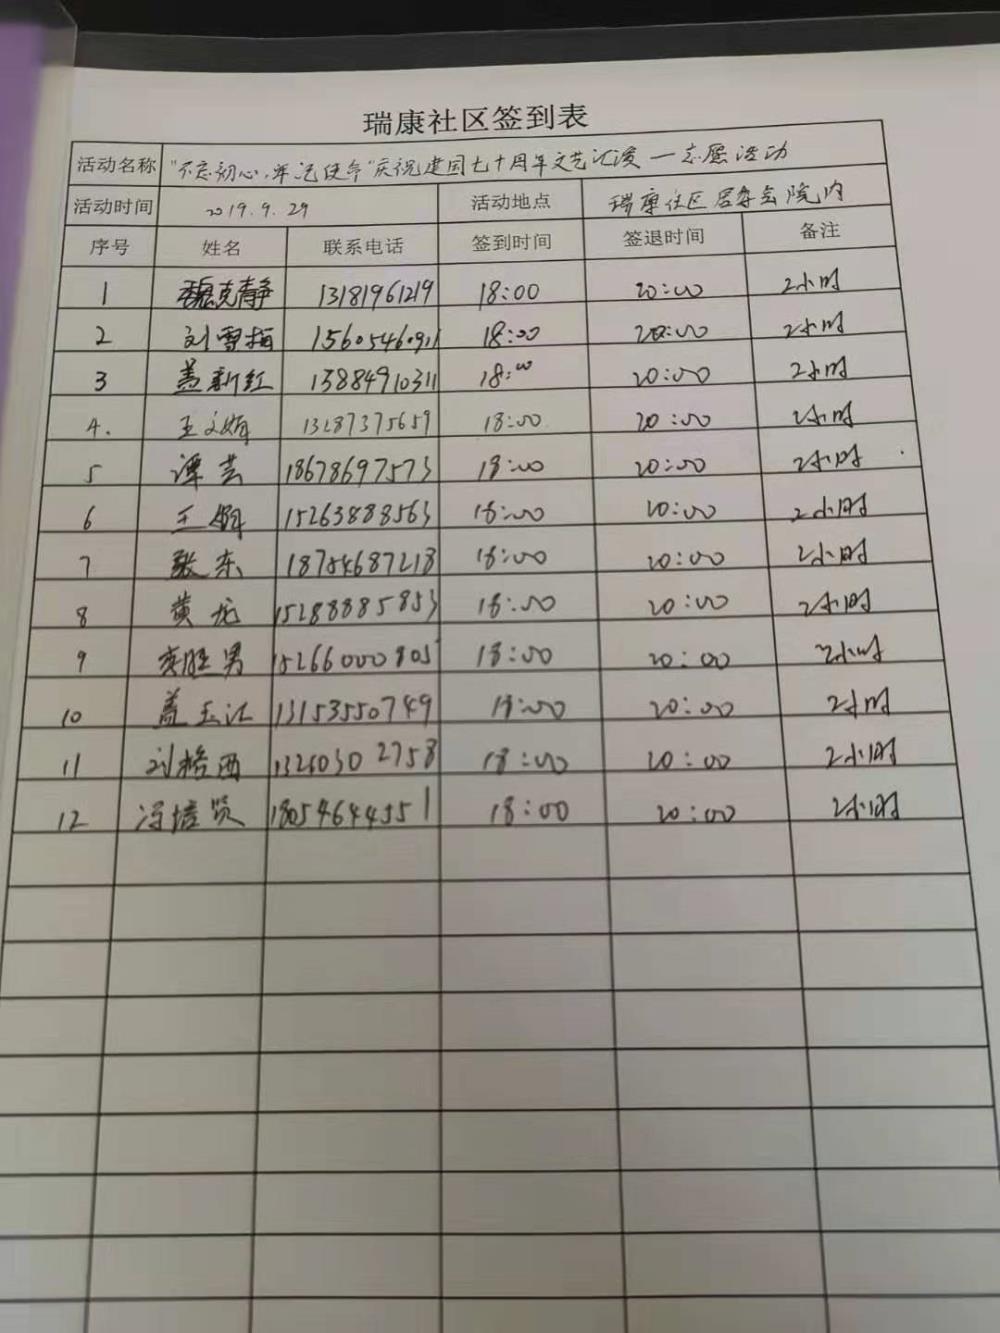 瑞康社区签到表
活动名称 "不忘初心,牢记使命"庆祝建国七十周年文艺汇演一志愿活动
活动时间 2019.9.29 活动地点 瑞康社区居委会院内
序号 姓名 联系电话 签到时间 签退时间 备注
1 魏克静 13181961219 18:00 20:00 2小时
2 刘雪梅 15605460911 18:00 20:00 2小时
3 盖新红 13884910311 18:00 20:00 2小时
4. 王文娟 13287375659 18:00 20:00 2小时
5 谭芸 18678697573 18:00 20:00 2小时
6 王娟 15263888563 18:00 20:00 2小时
7 张东 18754687218 18:00 20:00 2小时
8 黄龙 15288885853 18:00 20:00 2小时
9 胜男 15266000805 18:00 20:00 2小时
10 盖玉江 13153550749 18:00 20:00 2小时
11 刘格西 13260302758 18:00 20:00 2小时
12 冯培贤 18054644551 18:00 20:00 2小时